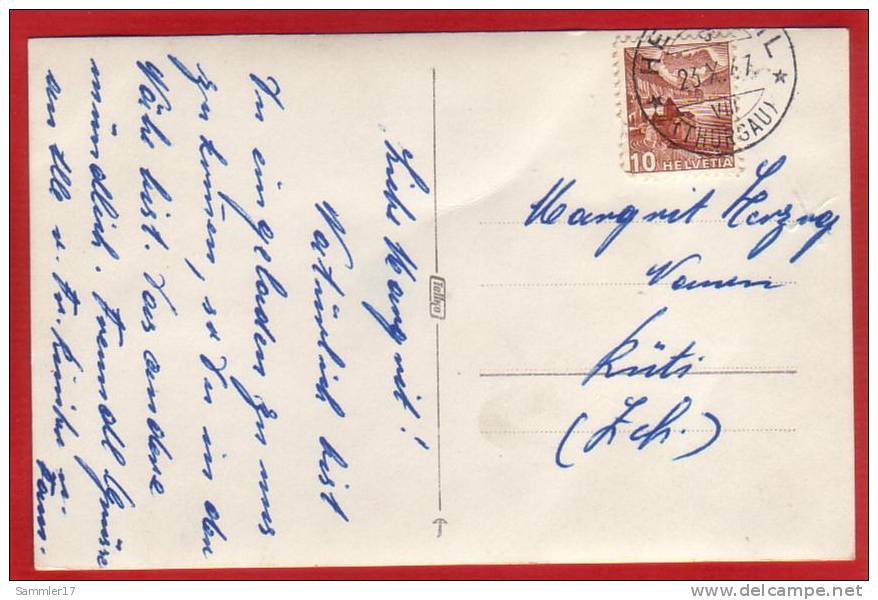 Liebe Margrit!
Natürlich bist
Du eingeladen zu uns
zu kommen, so Du in der
Nähe bist. Das andere
mündlich. Freundl. Grüsse
an alle v. Fr.
Fam.
Tellko
10 HELVETIA
23. X. 47
VIII
(THURGAU)
Margrit Herzog
Rüti
(Zch.)
Sammler17
delcampe.net